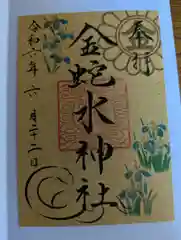 奉拝
金蛇水神社
令和六年六月二十二日